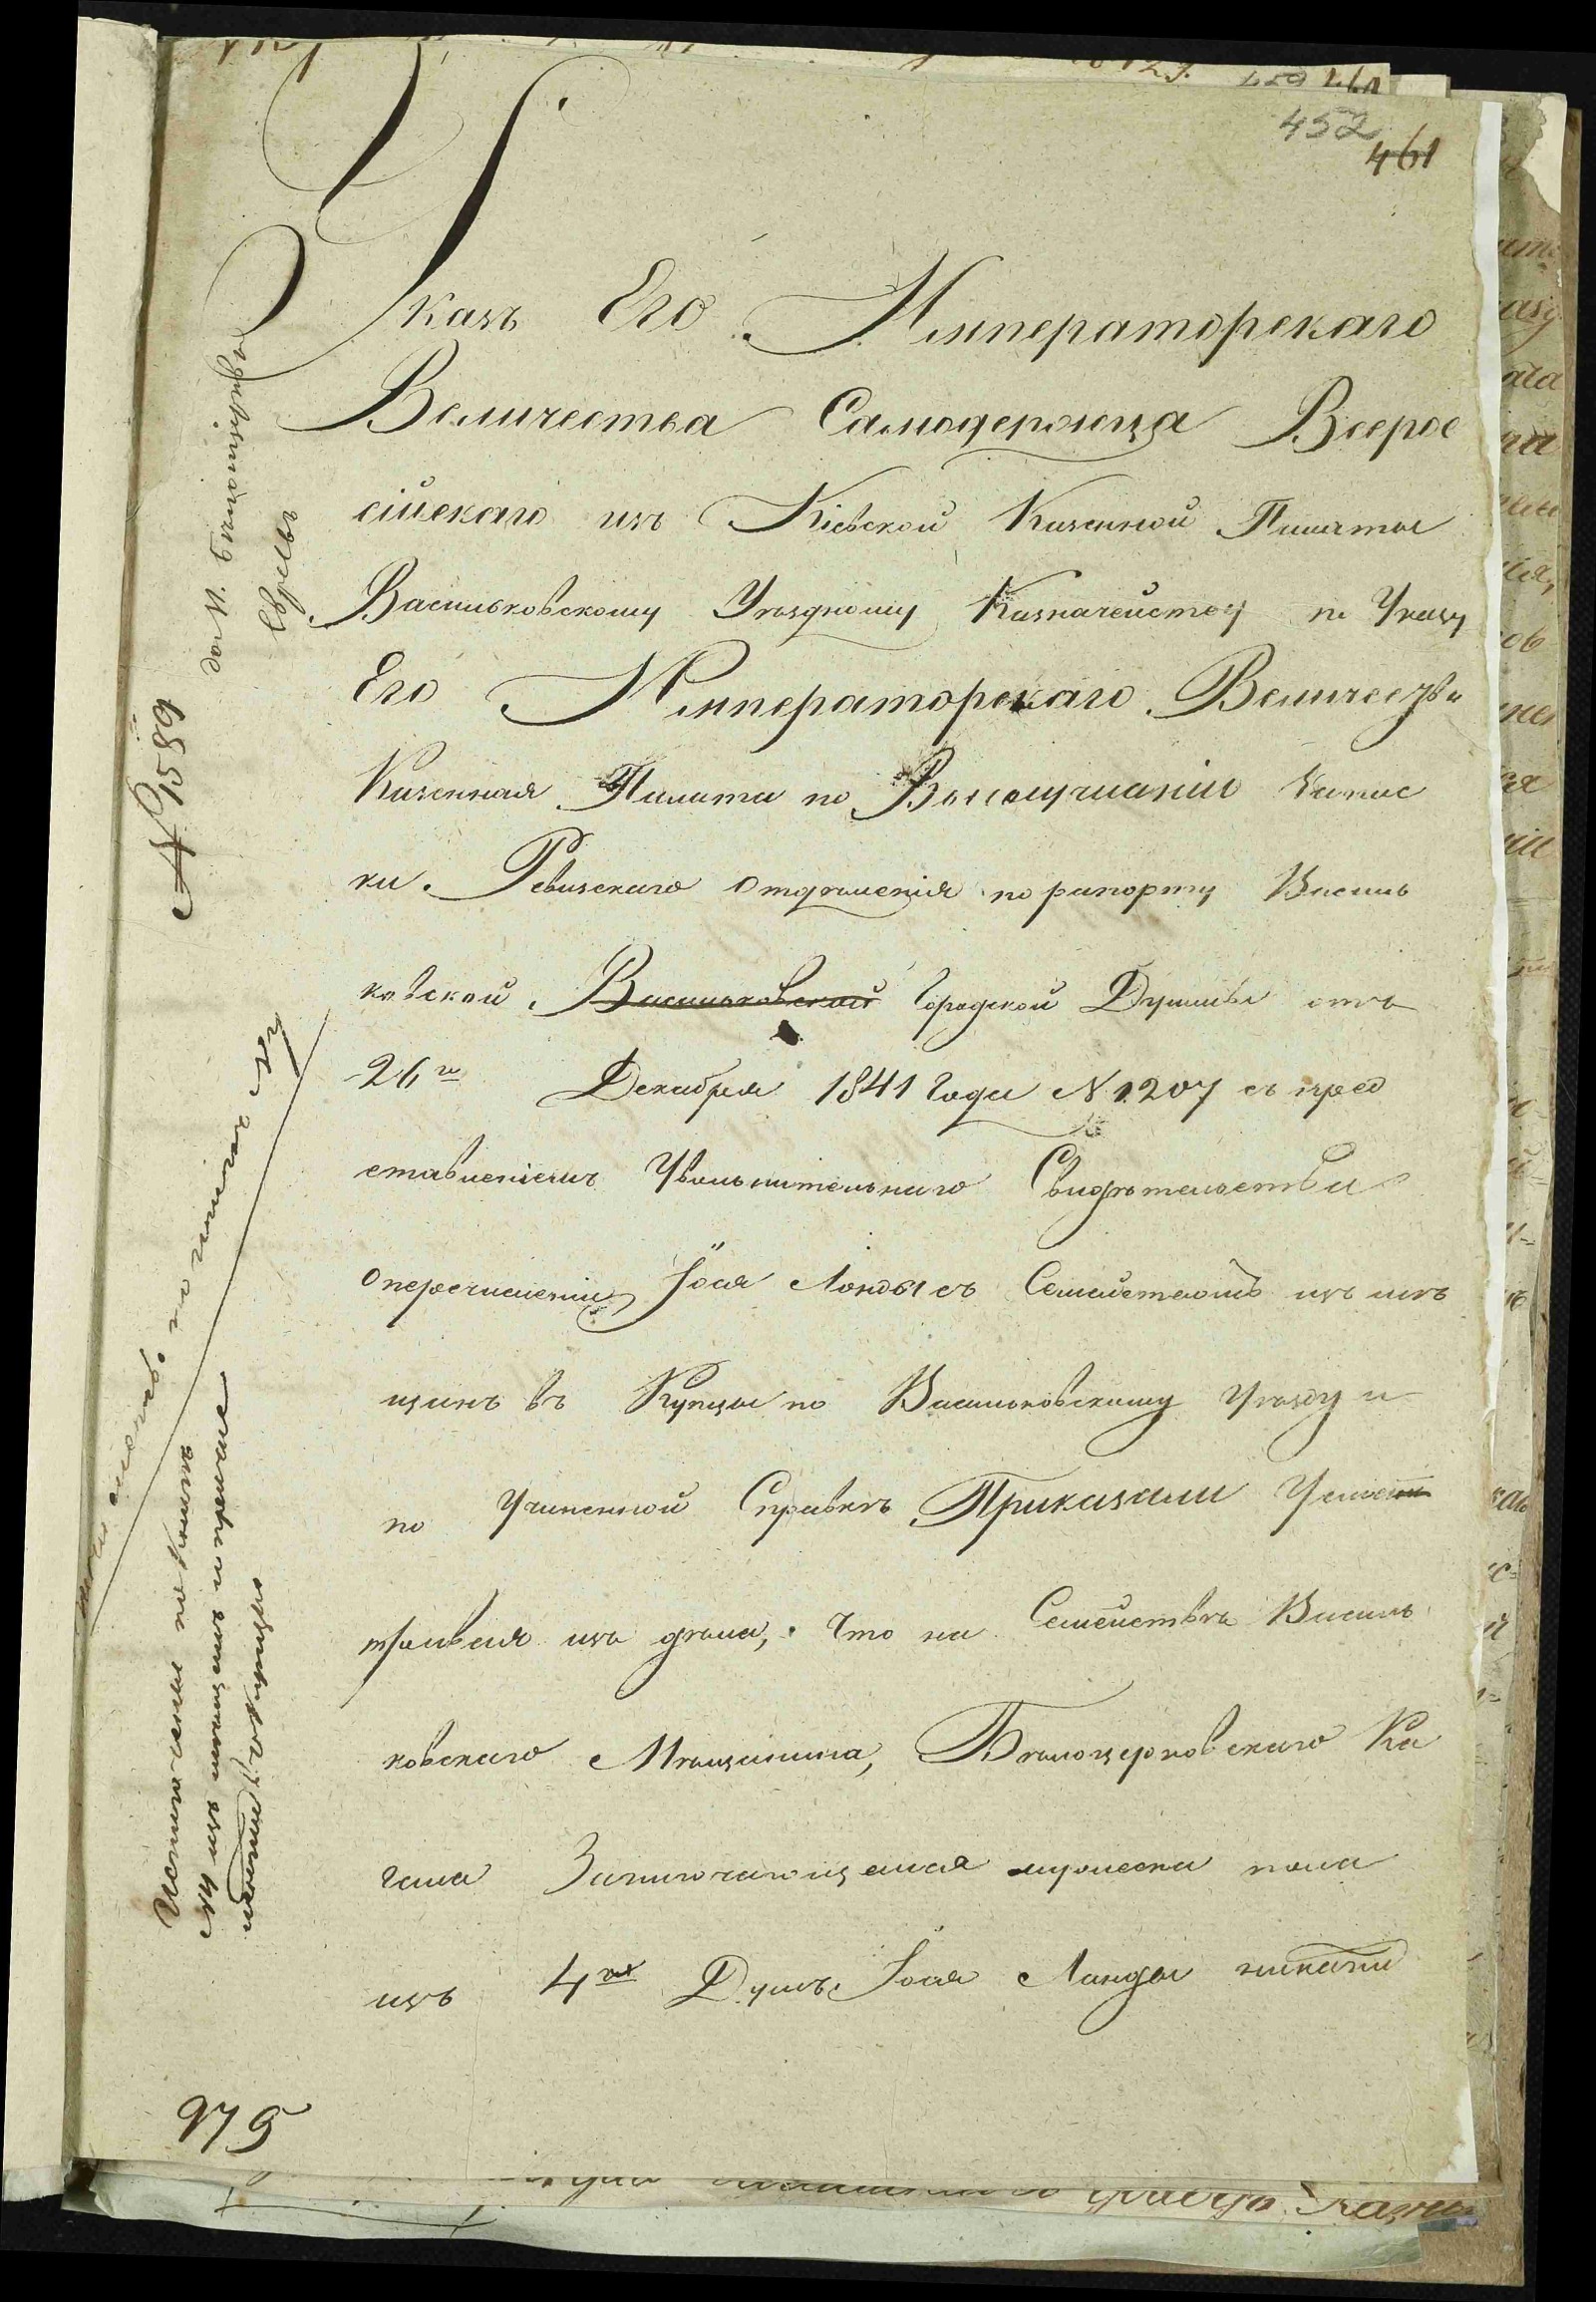 452
461
Указъ Его Императорскаго
Величества Самодержца Всерос
сійскаго изъ Кіевской Казенной Палаты
Васильковскому Уѣздному Казначейству по Указу
Его Императорскаго Величества
Казенная Палата по Выслушаніи Запис
ки Ревизскаго Отдѣленія по рапорту Василь
ковской Васильковской Городской Думы отъ
26го Декабря 1841 Года № 1207 съ пред
ставленіемъ Увольнительнаго Свидѣтельства
о перечисленіи Іося Ланды съ Семействомъ изъ мѣ
щанъ въ Купцы по Васильковскому уѣзду и
по Учиненной Справкѣ Приказали Усмо
трѣвъ изъ дѣла, Что на Семействѣ Василь
ковскаго Мѣщанина, Бѣлоцерковскаго Ка
гала Заключающемся мужеска пола
изъ 4хъ Душъ Іося Ланды никакой
№ 9589
975